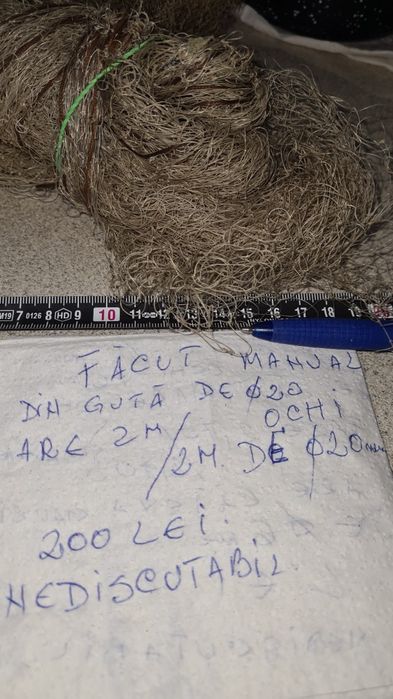 M19 7 0126 8 HD 9 10 11 12 13 14 15 16 17 18 19
FĂCUT MANUAL
DIN GUTĂ DE Ø20
OCHI
ARE 2M/2M. DE Ø20mm
200 LEI.
NEDISCUTABIL.